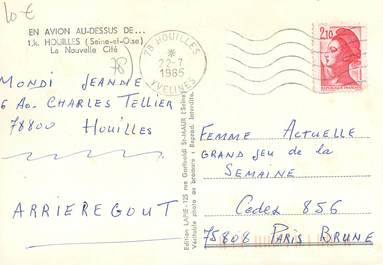 10€
EN AVION AU-DESSUS DE...
HOUILLES (Seine-et-Oise)
La Nouvelle Cité
78
78 HOUILLES
22-7
1985
YVELINES
2,10
MONDI JEANNE
6 AV. CHARLES TELLIER
78800 HOUILLES
ARRIEREGOUT
Edition LAPIE - 125 rue Garibaldi St-MAUR (Seine)
Véritable photo au bromure : Reprod. Interdite.
FEMME ACTUELLE
GRAND JEU DE LA
SEMAINE
CEDEX 856
75808 PARIS BRUNE